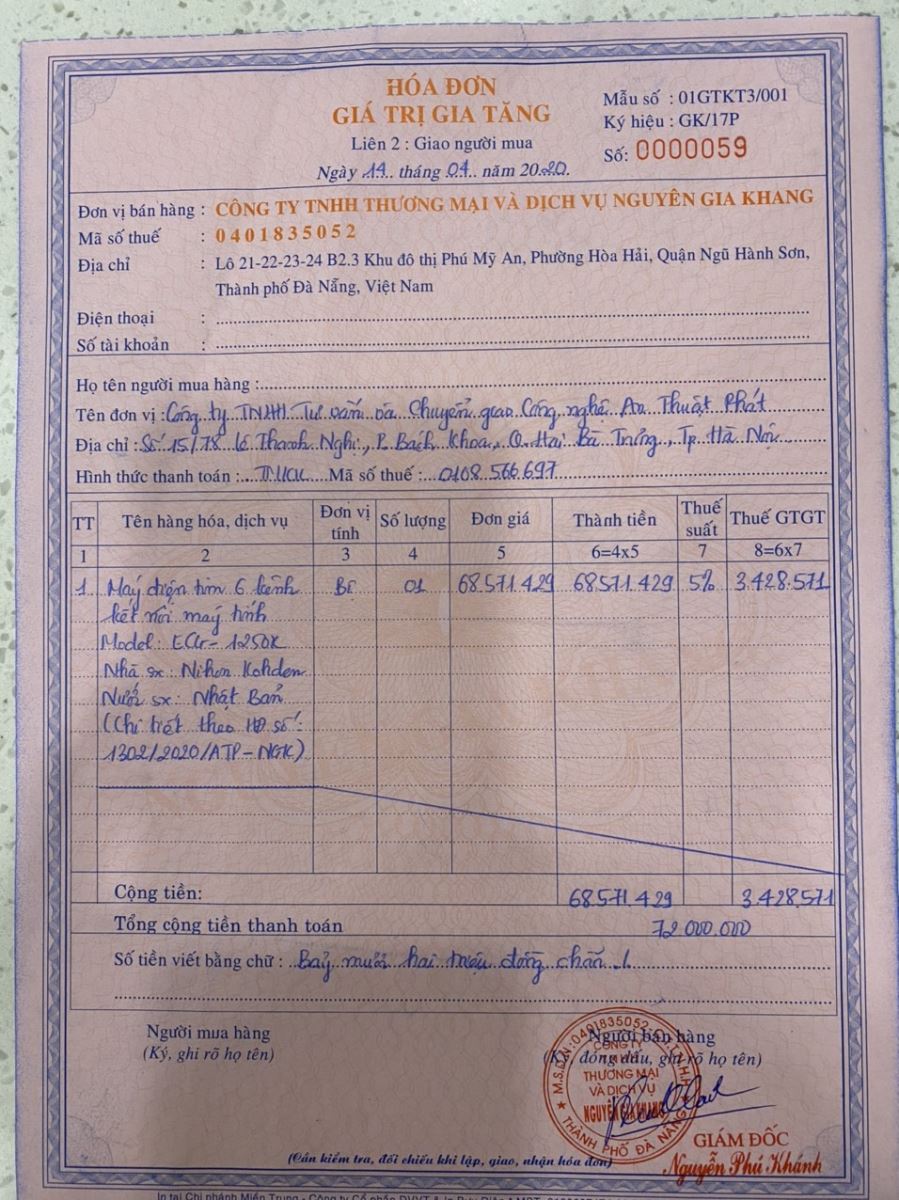 HÓA ĐƠN
GIÁ TRỊ GIA TĂNG
Liên 2 : Giao người mua
Ngày 14 tháng 04 năm 2020.
Mẫu số : 01GTKT3/001
Ký hiệu : GK/17P
Số: 0000059
Đơn vị bán hàng : CÔNG TY TNHH THƯƠNG MẠI VÀ DỊCH VỤ NGUYÊN GIA KHANG
Mã số thuế : 0401835052
Địa chỉ : Lô 21-22-23-24 B2.3 Khu đô thị Phú Mỹ An, Phường Hòa Hải, Quận Ngũ Hành Sơn,
Thành phố Đà Nẵng, Việt Nam
Điện thoại :
Số tài khoản :
Họ tên người mua hàng :
Tên đơn vị : Công ty TNHH Tư vấn và Chuyển giao Công nghệ An Thuật Phát
Địa chỉ : Số 15/78 Lê Thanh Nghị, P. Bách Khoa, Q. Hai Bà Trưng, Tp. Hà Nội
Hình thức thanh toán : TM/CK Mã số thuế : 0108.566.697
TT Tên hàng hóa, dịch vụ Đơn vị tính Số lượng Đơn giá Thành tiền Thuế suất Thuế GTGT
1 2 3 4 5 6=4x5 7 8=6x7
1 Máy điện tim 6 kênh Bộ 01 68.571.429 68.571.429 5% 3.428.571
kết nối máy tính
Model: ECG-1250K
Nhà sx: Nihon Kohden
Nước sx: Nhật Bản
(Chi tiết theo HĐ số:
1302/2020/ATP-NGK)
Cộng tiền: 68.571.429 3.428.571
Tổng cộng tiền thanh toán 72.000.000
Số tiền viết bằng chữ : Bảy mươi hai triệu đồng chẵn ./.
Người mua hàng
(Ký, ghi rõ họ tên)
Người bán hàng
(Ký, đóng dấu, ghi rõ họ tên)
M.S.D.N: 0401835052 - C.T.T.N.H.H
CÔNG TY
TNHH
THƯƠNG MẠI
VÀ DỊCH VỤ
NGUYÊN GIA KHANG
THÀNH PHỐ ĐÀ NẴNG
GIÁM ĐỐC
Nguyễn Phú Khánh
(Cần kiểm tra, đối chiếu khi lập, giao, nhận hóa đơn)
In tại Chi nhánh Miền Trung - Công ty Cổ phần